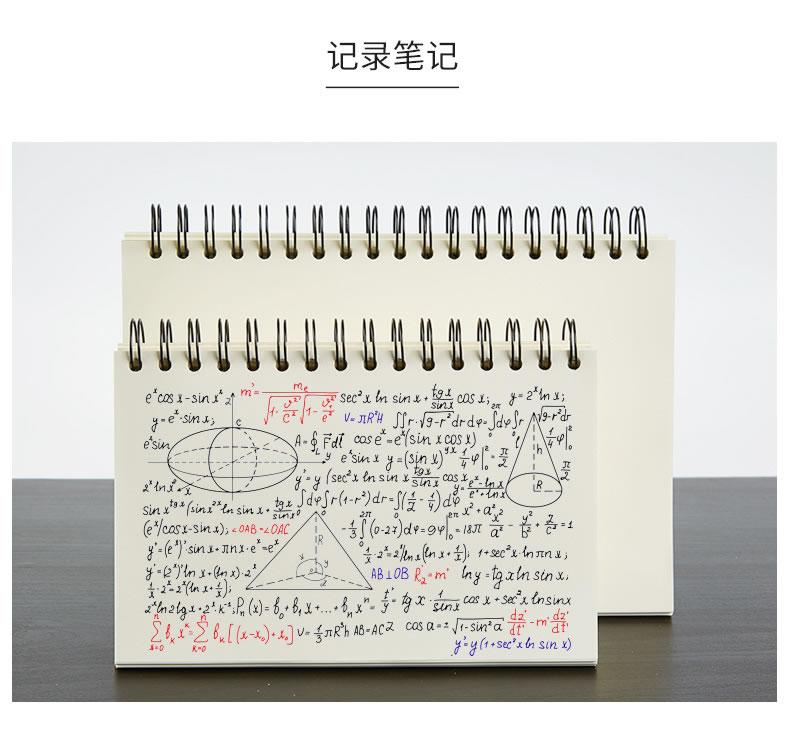 记录笔记
e^x cos x - sin x²
m' = m_e / √(1 - ϑ²/c²) √(1 - ϑ²/e²)
sec² x ln sin x + tg x / sin x cos x;
y = 2^x ln x;
y = e^x · sin x;
V = πR²H
∬ r · √(9-r²) dr dφ = ∫dφ ∫r √9-r² dr
e^x sin
c
A = ∮_L F dl
cos e^x = e^x (sin x cos x)
1/4 φ |₀ = π/2
h
y
e^x sin x y = (sin x)^yx 1/4 φ |₀^2π = π/2
2^x ln x²
x
y' = y (sec² x ln sin x tg x / sin x cos x
y = e^x - ln x / e^x + ln x
R
sin x^tg x (sin x^2x ln sin x + tg x / sin x
∫dφ ∫r (1-r²) dr = ∫(1/2 - 1/4) dφ
x² + a² x²
(e^x / cos x - sin x); ∠OAB = ∠OAC
R
-1/3 ∫₀^2π (0-27) dφ = 9φ |₀^2π = 18π
x²/a² - y²/b² + z²/c² = 1
y' = (e^x)' sin x + π n x · e^x = e^x
x
y
1/x · 2^x = 2^x ln x (ln x + 1/x); 1 + sec² x · ln π n x;
y' = (2^x)' ln x + (ln x) · 2^x
AB ⊥ OB
R₂ = m'
ln y = tg x ln sin x,
1/x · 2^x = 2^x (ln x + 1/x);
2^x ln 2 lg x + 2^x · k^-x;
P_n (x) = b₀ + b₁ x + ... + b_n x^n
t'/y = tg x · 1/sin x cos x + sec² x ln sin x
∑ b_k x^k = ∑ b_k [(x-x₀) + x₀]
V = 1/3 πR³h AB = AC 2
cos a = ± √(1 - sin² a)
dz'/dt' - m' dz'/dt'
y' = y (1 + sec² x ln sin x)